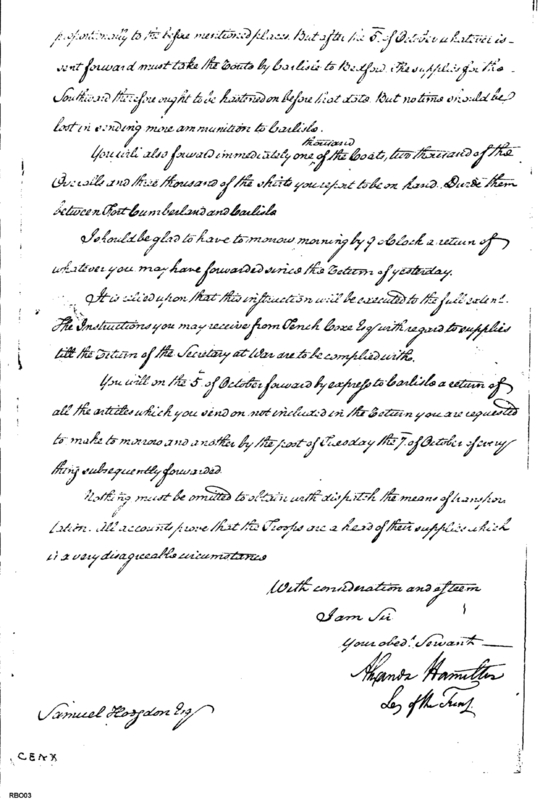 proportionally to the before mentioned places. But after the 5th of October whatever is
sent forward must take the Route by Carlisle to Bedford. The supplies for the
Southward therefore ought to be hastened on before that date. But no time should be
lost in sending more ammunition to Carlisle.
You will also forward immediately one thousand of the Coats, two thousand of the
Overalls and three thousand of the shirts you report to be on hand. Divide them
between Fort Cumberland and Carlisle
I should be glad to have to morrow morning by 9 oClock a return of
whatever you may have forwarded since the Return of yesterday.
It is relied upon that this instruction will be executed to the full extent.
The Instructions you may receive from Tench Coxe Esq with regard to supplies
till the Return of the Secretary at War are to be complied with.
You will on the 5th of October forward by express to Carlisle a return of
all the articles which you send on not included in the Return you are requested
to make to morrow and another by the post of Tuesday the 7th of October of every
thing subsequently forwarded
Nothing must be omitted to obtain with dispatch the means of transpor
tation. All accounts prove that the Troops are a head of their supplies which
is a very disagreeable circumstance
With consideration and esteem
I am Sir
Your obedt. Servant
Alexandr Hamilton
Sec of the Treasy
Samuel Hogdon Esqr
CENX
RBO03